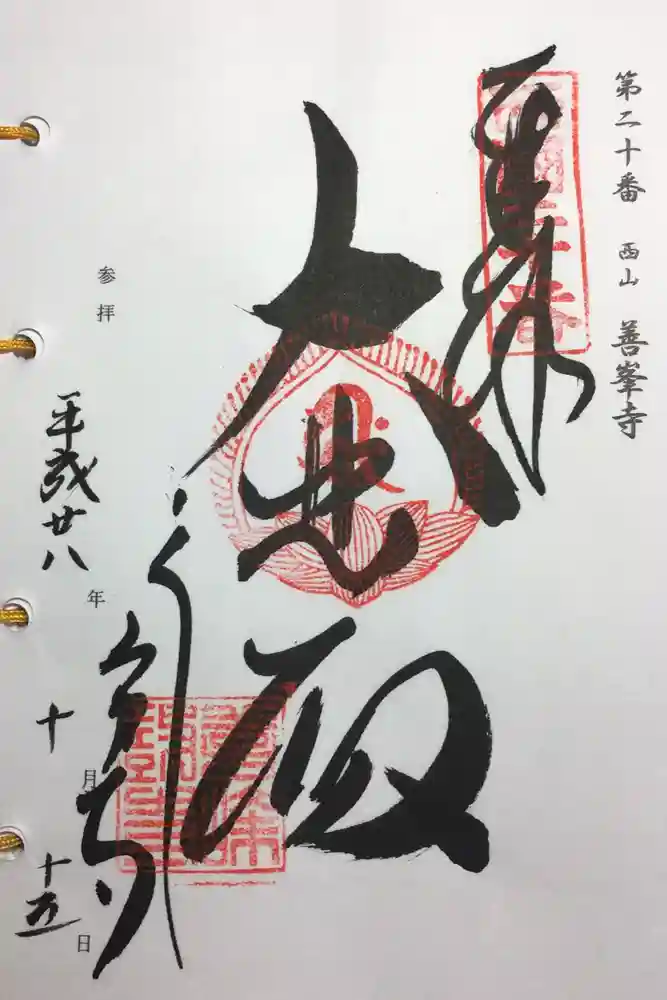 第二十番 西山 善峯寺
奉拝
西國二十番
大悲殿
参拝
平成廿八年十月十五日